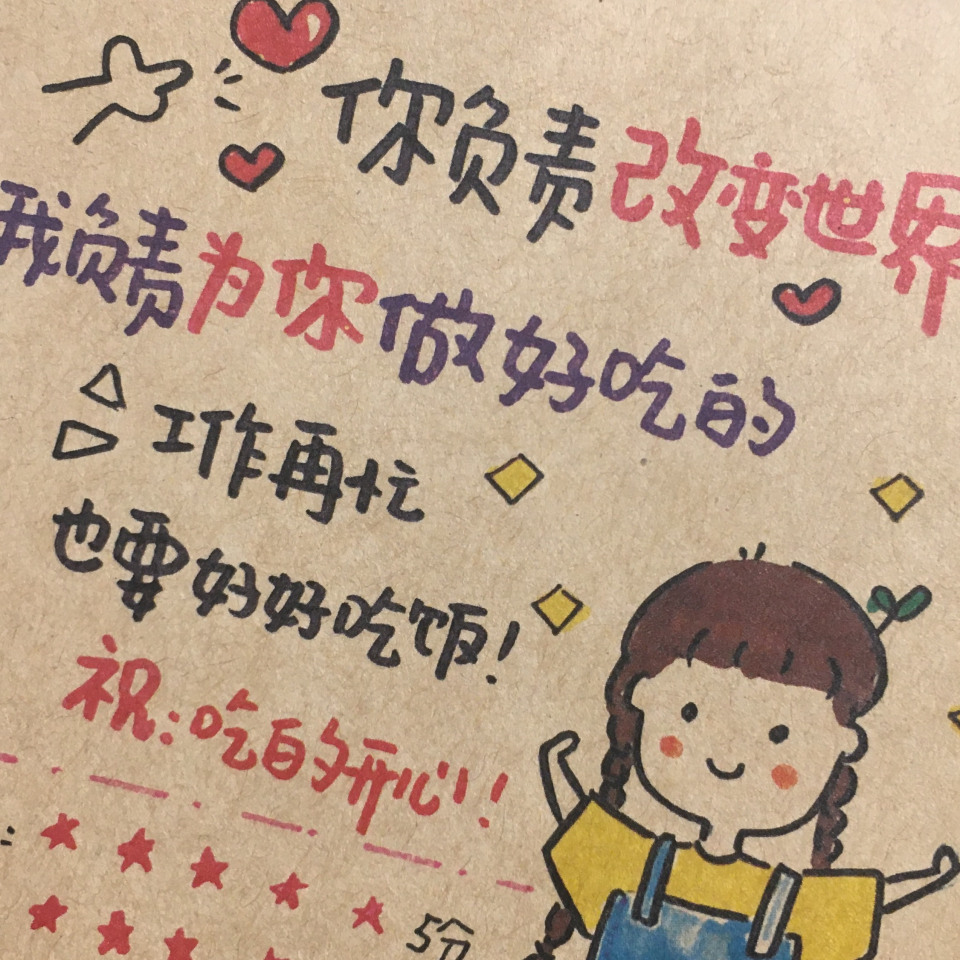 你负责改变世界
我负责为你做好吃的
工作再忙
也要好好吃饭!
祝:吃的开心!!
5分